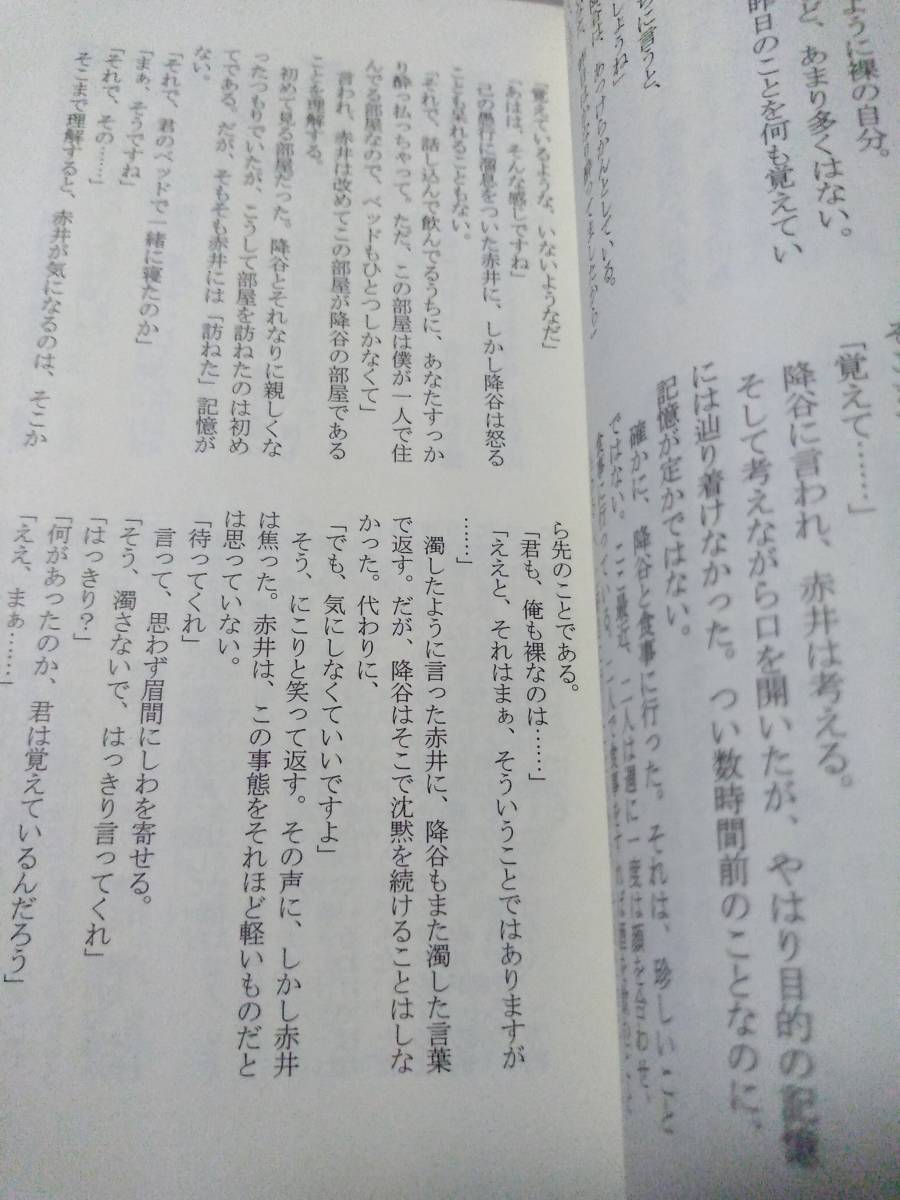 ように裸の自分。
ど、あまり多くはない。
昨日のことを何も覚えてい
ちに言うと、
しようね」
あっけらかんとしている。
「覚えて……」
降谷に言われ、赤井は考える。
そして考えながら口を開いたが、やはり目的の記憶
には辿り着けなかった。つい数時間前のことなのに、
記憶が定かではない。
確かに、降谷と食事に行った。それは、珍しいこと
ではない。ここ最近、二人は週に一度は顔を合わせ、
「覚えているような、いないようなだ」
「あはは、そんな感じですね」
己の愚行に溜息をついた赤井に、しかし降谷は怒る
ことも呆れることもない。
「それで、話し込んで飲んでるうちに、あなたすっか
り酔っ払っちゃって。ただ、この部屋は僕が一人で住
んでる部屋なので、ベッドもひとつしかなくて」
言われ、赤井は改めてこの部屋が降谷の部屋である
ことを理解する。
初めて見る部屋だった。降谷とそれなりに親しくな
ったつもりでいたが、こうして部屋を訪ねたのは初め
てである。だが、そもそも赤井には「訪ねた」記憶が
ない。
「それで、君のベッドで一緒に寝たのか」
「まぁ、そうですね」
「それで、その……」
そこまで理解すると、赤井が気になるのは、そこか
ら先のことである。
「君も、俺も裸なのは……」
「ええと、それはまぁ、そういうことではありますが
……」
濁したように言った赤井に、降谷もまた濁した言葉
で返す。だが、降谷はそこで沈黙を続けることはしな
かった。代わりに、
「でも、気にしなくていいですよ」
そう、にこりと笑って返す。その声に、しかし赤井
は焦った。赤井は、この事態をそれほど軽いものだと
は思っていない。
「待ってくれ」
言って、思わず眉間にしわを寄せる。
「そう、濁さないで、はっきり言ってくれ」
「はっきり？」
「何があったのか、君は覚えているんだろう」
「ええ、まぁ……」